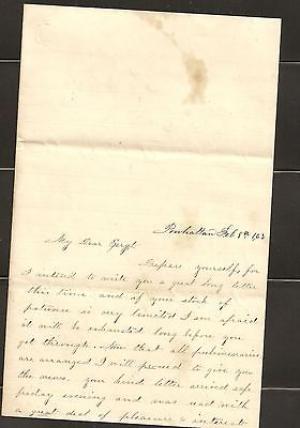 Powhattan Feb 8th 163
My Dear
Prepare yourself, for
I intend to write you a great long letter
this time and if your stock of
patience is very limited I am afraid
it will be exhausted long before you
get through. Now that all preliminaries
are arranged I will proceed to give you
the news. your kind letter arrived safe
friday evening and was read with
a great deal of pleasure & interest